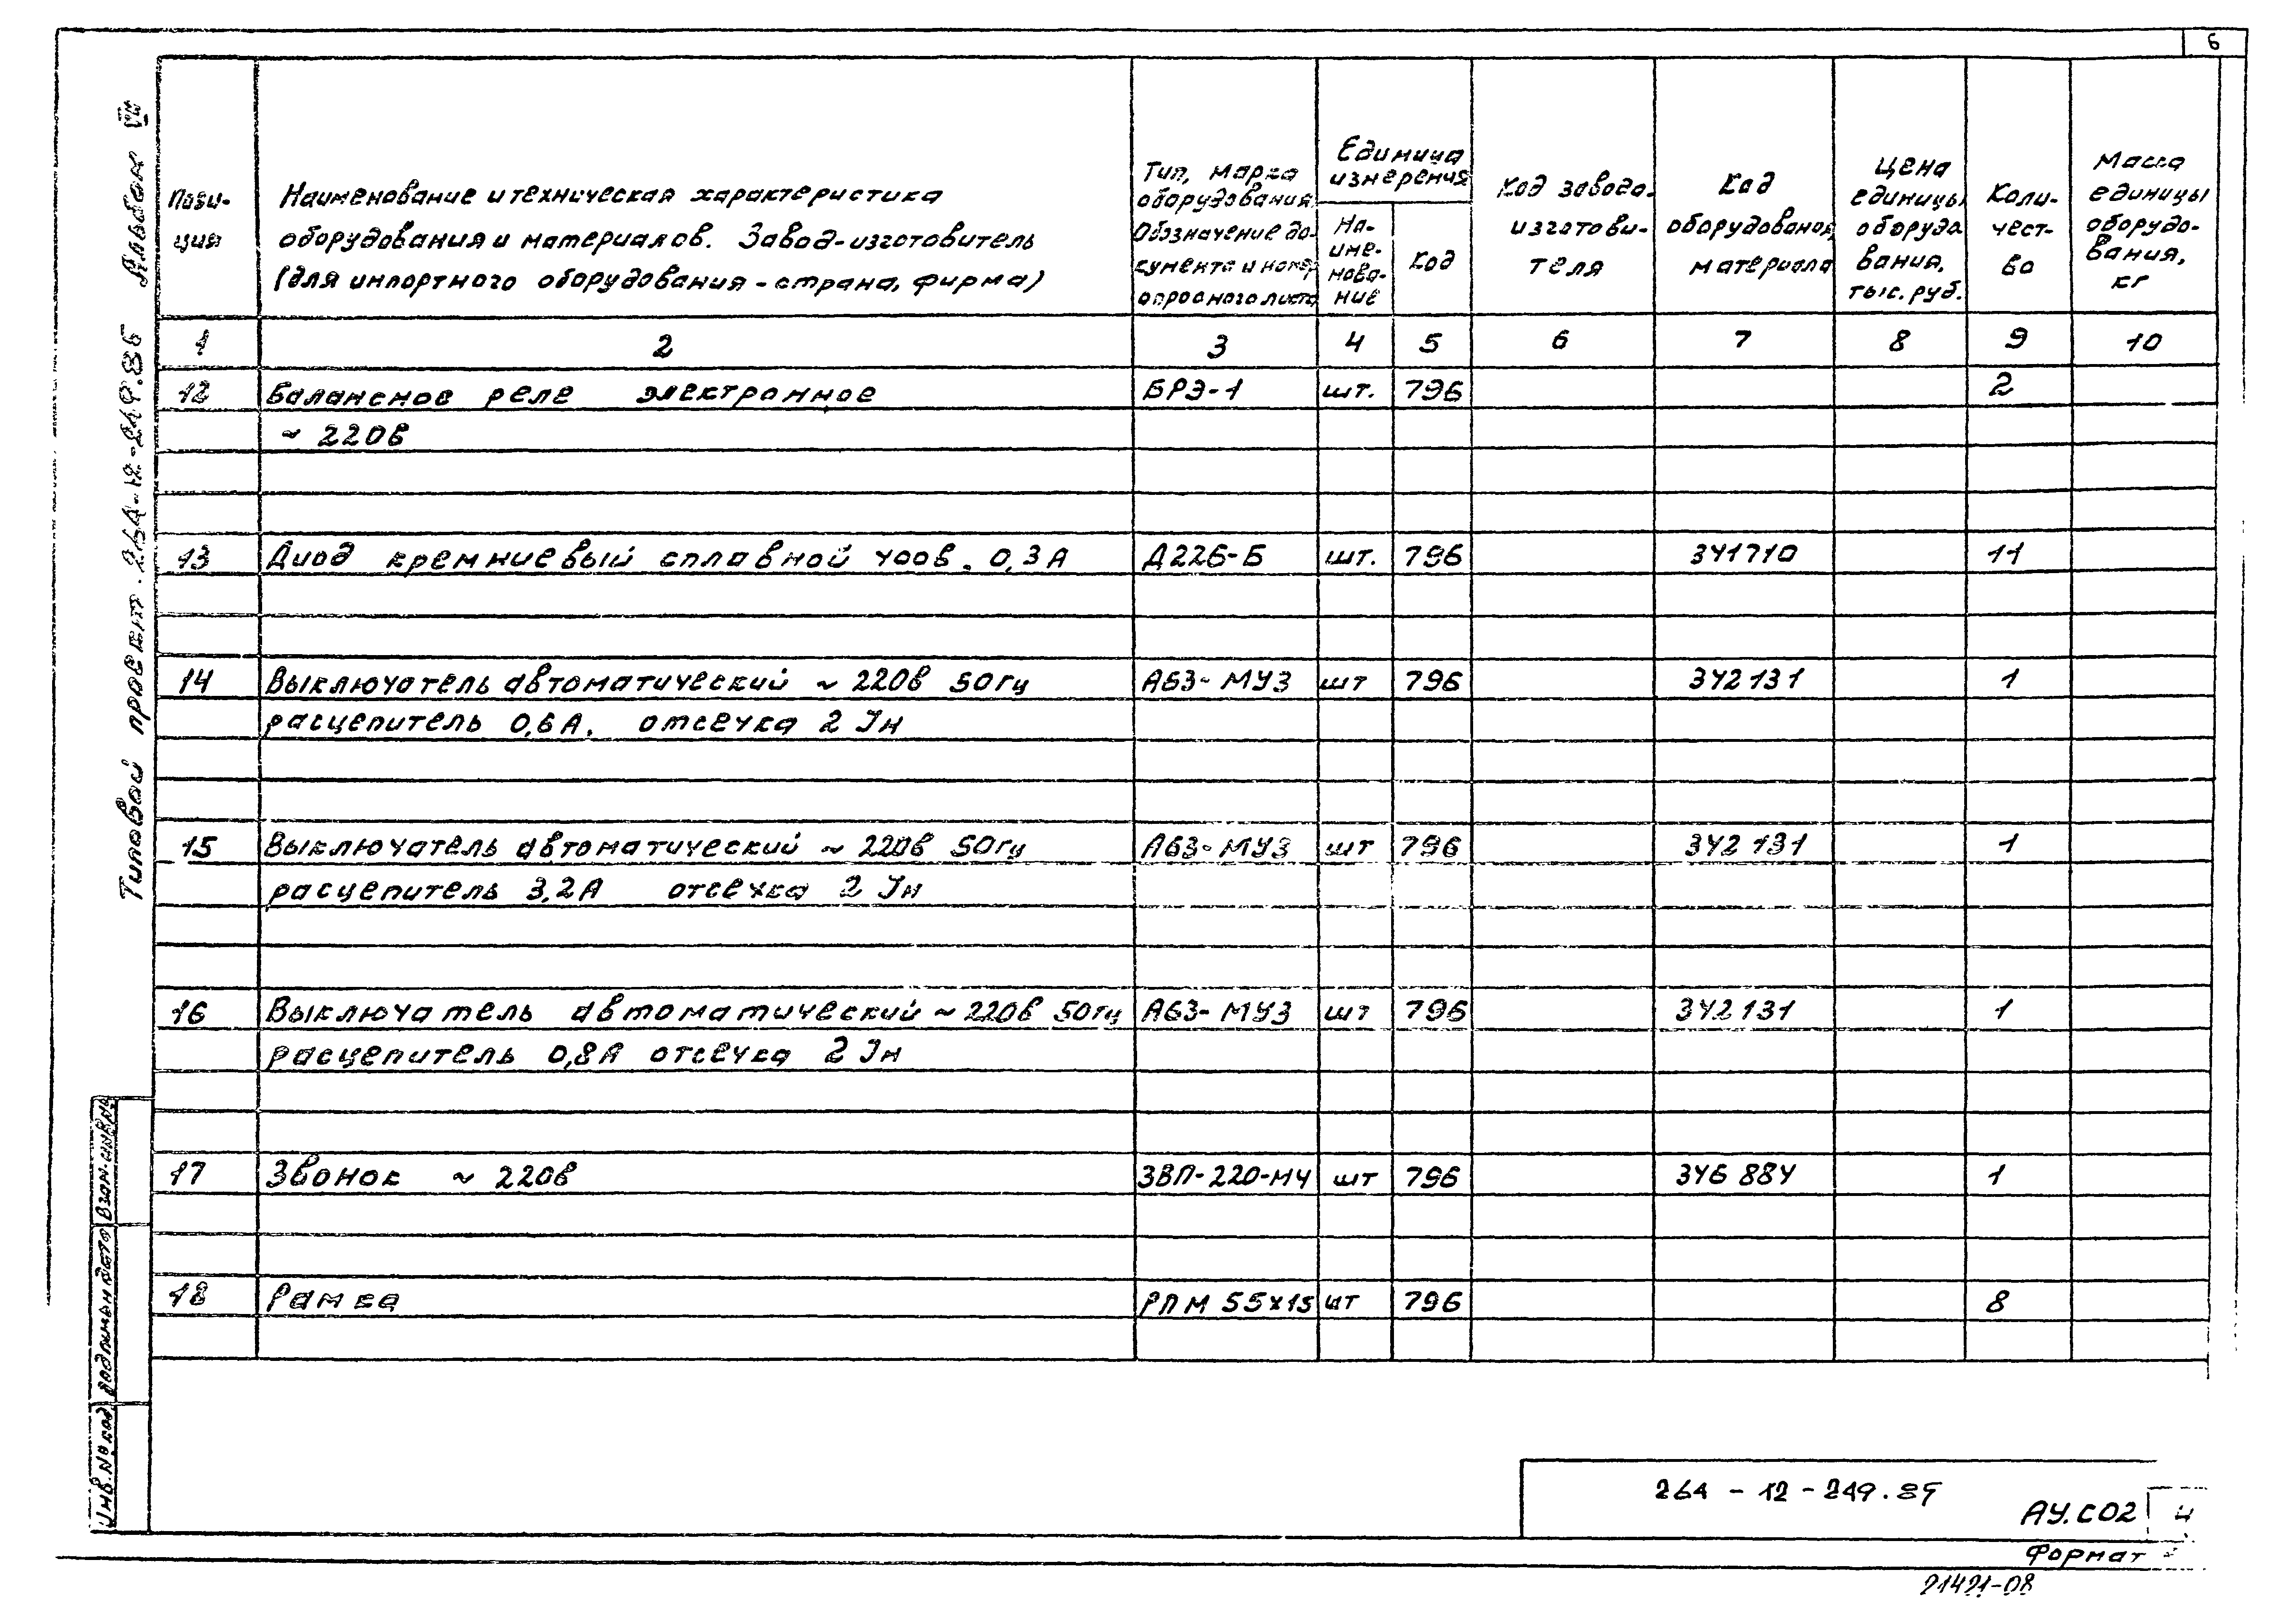 6
Пози-
ция
Наименование и техническая характеристика
оборудования и материалов. Завод-изготовитель
(для импортного оборудования - страна, фирма)
Тип, марка
оборудования.
Обозначение до-
кумента и номер
опросного листа
Единица
измерения
На-
име-
нова-
ние
Код
Код завода-
изготови-
теля
Код
оборудования,
материала
Цена
единицы
оборудо
вания,
тыс. руб.
Коли-
чест-
во
Масса
единицы
оборудо-
вания,
кг
1 2 3 4 5 6 7 8 9 10
12 Балансное реле электронное БРЭ-1 шт. 796 2
~ 220в
13 Диод кремниевый сплавной 400в. 0,3А Д226-Б шт. 796 341710 11
14 Выключатель автоматический ~ 220в 50гц А63-МУ3 шт 796 342131 1
расцепитель 0,6А, отсечка 2 Iн
15 Выключатель автоматический ~ 220в 50гц А63-МУ3 шт 796 342131 1
расцепитель 3,2А отсечка 2 Iн
16 Выключатель автоматический ~ 220в 50гц А63-МУ3 шт 796 342131 1
расцепитель 0,8А отсечка 2 Iн
17 Звонок ~ 220в ЗВП-220-М4 шт 796 346 884 1
18 Рамка РПМ 55х15 шт 796 8
Типовой проект 264-12-249.86 Альбом VIII
Взам. инв.№
Подпись и дата
Инв.№ под
264 - 12 - 249.
АУ.СО2 4
Формат
21421-08